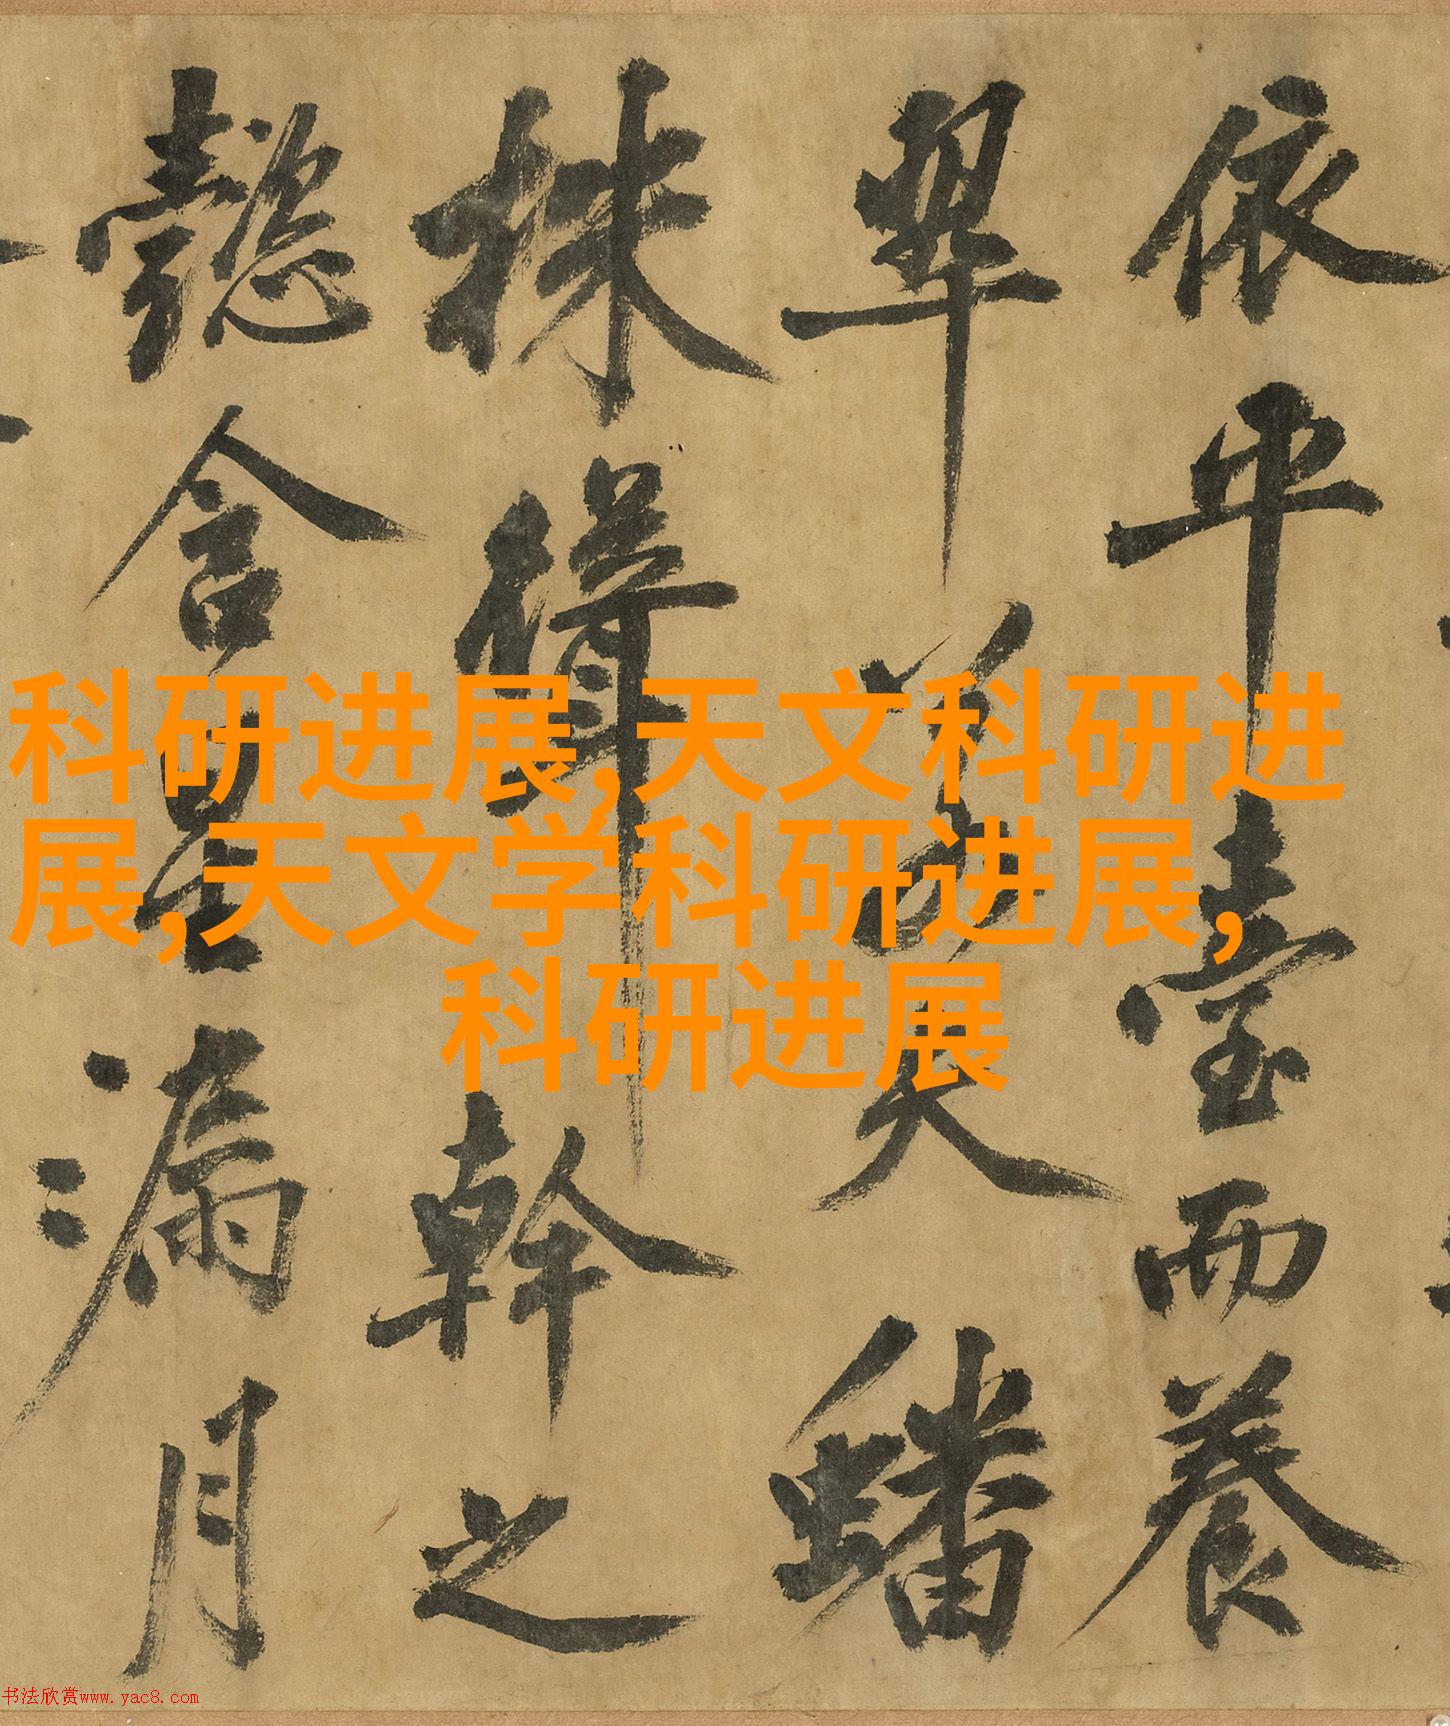 依平臺而養
翠蟠
株聳幹之
懿含星漏月
科研进展,天文科研进
展,天文学科研进展,
科研进展
书法欣赏www.yac8.com